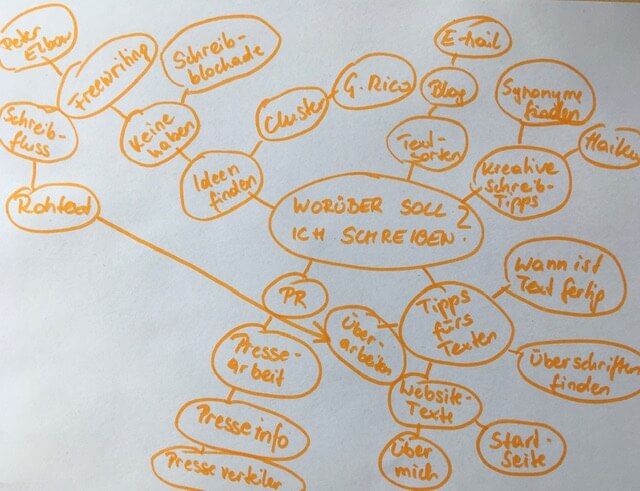 Peter
Elbow
Freewriting
Schreib-
blockade
Schreib-
fluss
Rohtext
Keine
haben
Ideen
finden
Cluster
G. Rico
E-Mail
Blog
Text-
sorten
Synonyme
finden
Haiku
Kreative
Schreib-
Tipps
WORÜBER SOLL
ICH SCHREIBEN?
PR
Presse-
arbeit
Presseinfo
Presseverteiler
Über-
arbeiten
Tipps
fürs
Texten
Wann ist
Text fertig
Überschriften
finden
Website-
Texte
Über
mich
Start-
Seite